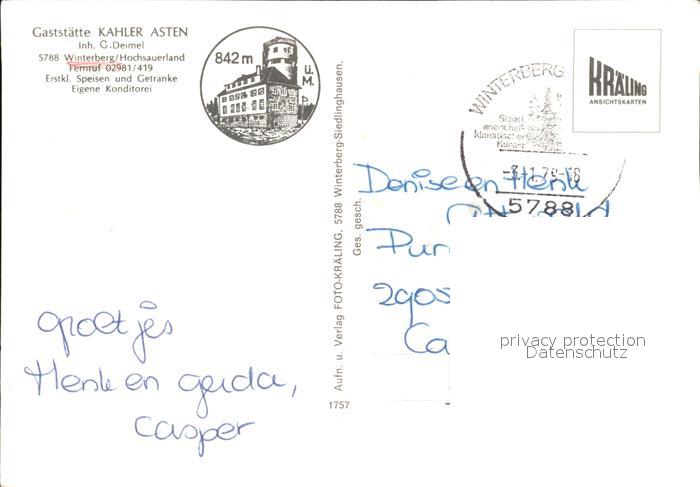 Gaststätte KAHLER ASTEN
Inh. G. Deimel
5788 Winterberg/Hochsauerland
Fernruf 02981/419
Erstkl. Speisen und Getränke
Eigene Konditorei
842 m
ü.
M.
WINTERBERG
Staatl
anerkheit
klimatischer
Kurort
5788
KRÄLING
ANSICHTSKARTEN
Denise en Henk
Pur
290
Ca
groetjes
Henk en gerda,
casper
Aufn. u. Verlag FOTO-KRÄLING, 5788 Winterberg-Siedlinghausen.
Ges. gesch.
1757
privacy protection
Datenschutz